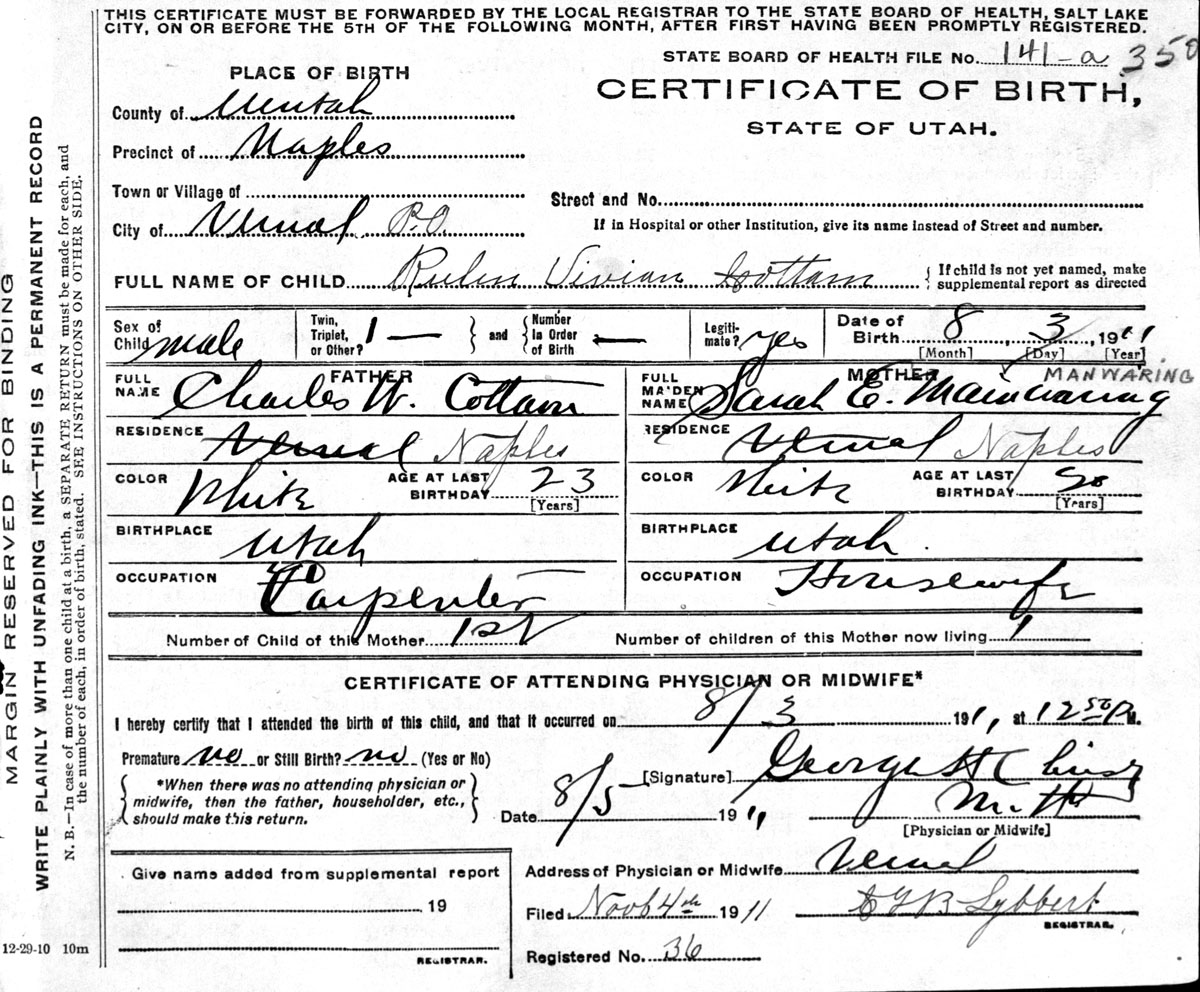 THIS CERTIFICATE MUST BE FORWARDED BY THE LOCAL REGISTRAR TO THE STATE BOARD OF HEALTH, SALT LAKE
CITY, ON OR BEFORE THE 5TH OF THE FOLLOWING MONTH, AFTER FIRST HAVING BEEN PROMPTLY REGISTERED.
STATE BOARD OF HEALTH FILE No. 141-a 350
PLACE OF BIRTH
CERTIFICATE OF BIRTH,
STATE OF UTAH.
County of Uintah
Precinct of Naples
Town or Village of
Street and No.
City of Vernal P.O.
If in Hospital or other Institution, give its name Instead of Street and number.
FULL NAME OF CHILD Vivian Cottam
{ If child is not yet named, make
supplemental report as directed
Sex of Child male
Twin, Triplet, or Other? 1 —
} and { Number In Order of Birth —
Legiti-mate? yes
Date of Birth 8, 3, 1911
[Month] [Day] [Year]
FATHER
MOTHER MANWARING
FULL NAME Charles W. Cottam
FULL MAIDEN NAME Sarah E. Mainwaring
RESIDENCE Vernal Naples
RESIDENCE Vernal Naples
COLOR White AGE AT LAST BIRTHDAY 23 [Years]
COLOR White AGE AT LAST BIRTHDAY 20 [Years]
BIRTHPLACE Utah
BIRTHPLACE Utah.
OCCUPATION Carpenter
OCCUPATION Housewife
Number of Child of this Mother 1st
Number of children of this Mother now living 1
CERTIFICATE OF ATTENDING PHYSICIAN OR MIDWIFE*
I hereby certify that I attended the birth of this child, and that it occurred on 8/3 1911, at 12 50 P M.
Premature no or Still Birth? no (Yes or No)
{ *When there was no attending physician or
midwife, then the father, householder, etc.,
should make this return. }
[Signature] George H
Date 8/5 1911
[Physician or Midwife]
Address of Physician or Midwife Vernal
Give name added from supplemental report
19
REGISTRAR.
Filed Nov 4th 1911 Lybbert
REGISTRAR.
Registered No. 36
12-29-10 10m
MARGIN RESERVED FOR BINDING
WRITE PLAINLY WITH UNFADING INK—THIS IS A PERMANENT RECORD
N. B.—In case of more than one child at a birth, a SEPARATE RETURN must be made for each, and
the number of each, in order of birth, stated. SEE INSTRUCTIONS ON OTHER SIDE.